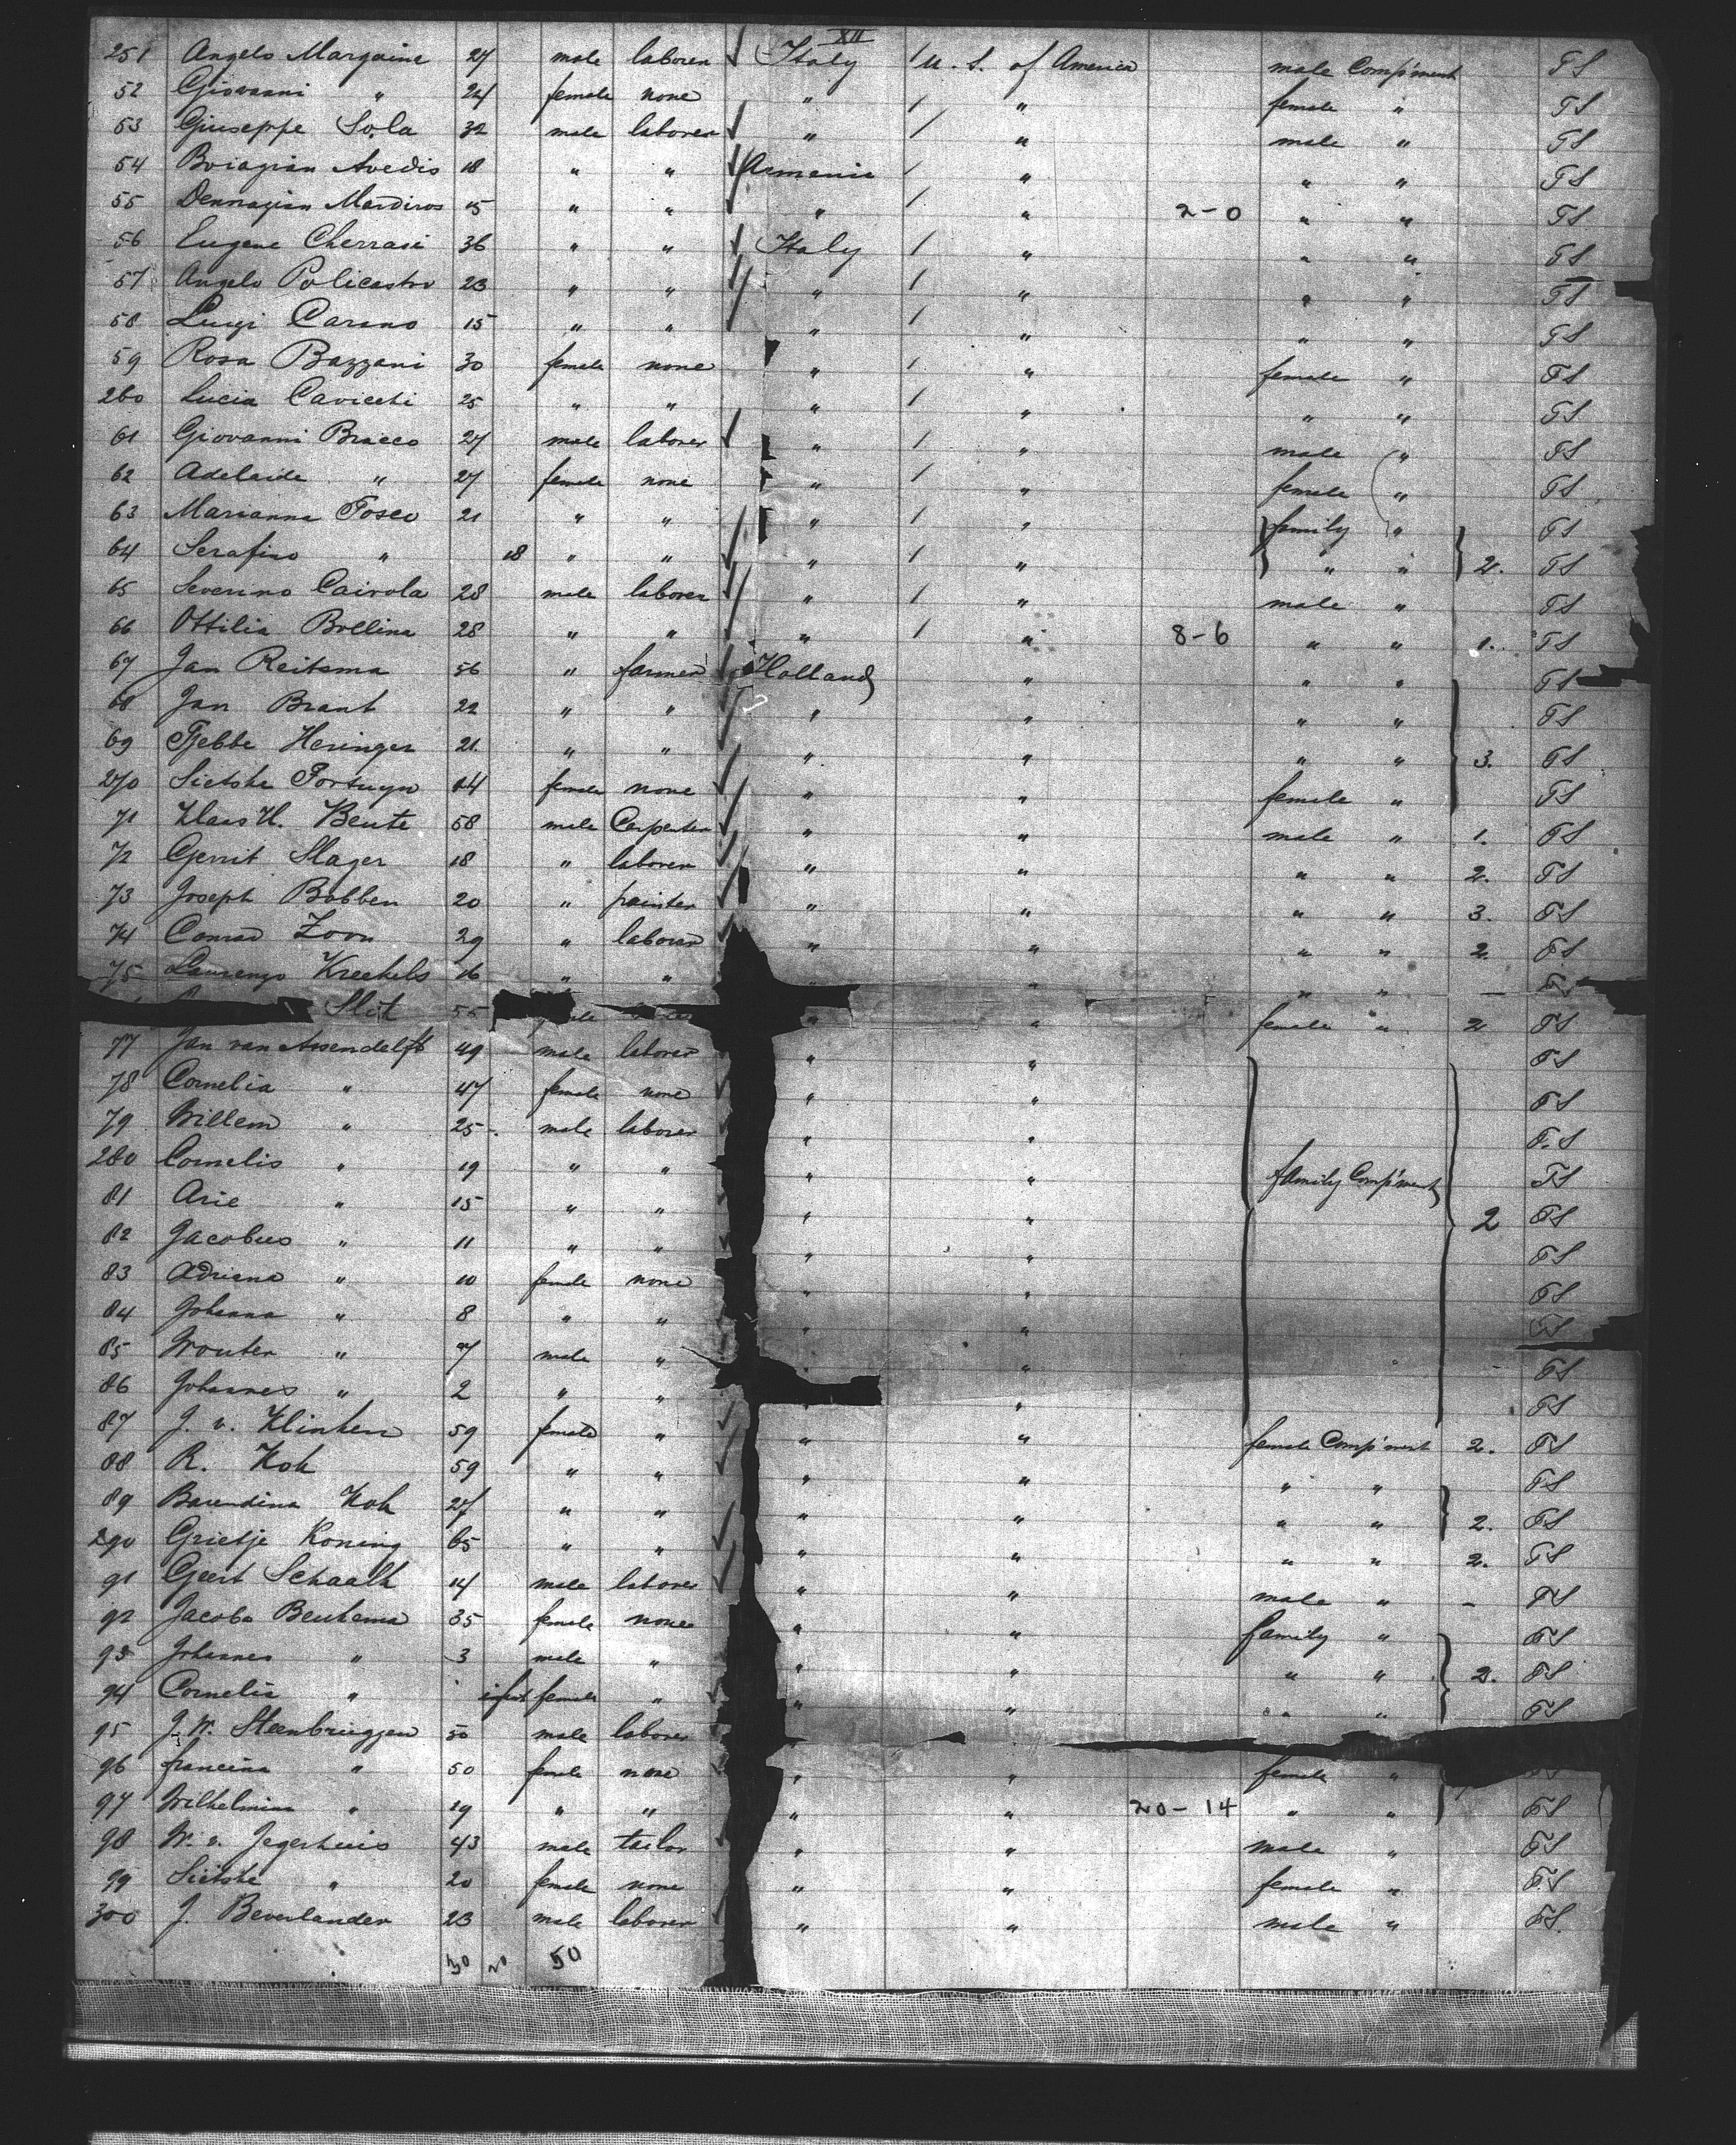 XII
251 Angelo Margaina 27 male laborer Italy / U. S. of America male Comp'ment TS
52 Giovanni " 24 female none " / " female " TS
53 Giuseppe Sola 32 male laborer " / " male " TS
54 Boiagian Avedis 18 " " Armenia / " " " TS
55 Dennagian Mardiros 15 " " " / " 2-0 " " TS
56 Eugene Cherrasi 36 " " Italy / " " " TS
57 Angelo Policastro 23 " " " / " " " TS
58 Luigi Carano 15 " " " / " " " TS
59 Rosa Bazzani 30 female none " / " female " TS
260 Lucia Cavicchi 25 " " " / " " " TS
61 Giovanni Bracco 27 male laborer " / " male " TS
62 Adelaide " 27 female none " / " female " TS
63 Marianna Fosco 21 " " " / " family " TS
64 Serafino " 18 " " " / " " " 2. TS
65 Severino Cairola 28 male laborer " / " male " TS
66 Ottilia Bollina 28 " " " / " 8-6 " " 1. TS
67 Jan Reitsma 56 " farmer Holland " " " TS
68 Jan Brant 22 " " " " " " TS
69 Tjebbe Heringer 21 " " " " " " 3. TS
270 Sietske Fortuyn 24 female none " " female " TS
71 Klaas H. Beute 58 male Carpenter " " male " 1. TS
72 Gerrit Slager 18 " laborer " " " " 2. TS
73 Joseph Bobben 20 " painter " " " " 3. TS
74 Conrad Zoon 29 " laborer " " " " 2. TS
75 Laurenzo Kreekels 16 " " " " " " — TS
Slit 55 " " female " 2 TS
77 Jan van Assendelft 49 male laborer " " TS
78 Cornelia " 47 female none " " TS
79 Willem " 25 male laborer " " T.S
280 Cornelis " 19 " " " " family Comp'ment TS
81 Arie " 15 " " " " 2 TS
82 Jacobus " 11 " " " " TS
83 Adriana " 10 female none " " TS
84 Johanna " 8 " " " " TS
85 Wouter " 7 male " " TS
86 Johannes " 2 " " " " TS
87 J. v. Klinken 59 female " " " female Comp'ment 2. TS
88 R. Kok 59 " " " " " " TS
89 Barendina Kok 27 " " " " " " 2. TS
290 Grietje Koning 65 " " " " " " 2. TS
91 Geert Schaalk 14 male laborer " " male " - TS
92 Jacoba Beukema 35 female none " " family " TS
93 Johannes " 3 male " " " " " 2. TS
94 Cornelia " infant female " " " " " TS
95 J. W. Steenbruggen 50 male laborer
96 francina " 50 female none " " female "
97 Wilhelmina " 19 " " " " 20-14 " " TS
98 W. v. Jegerhuis 43 male tailor " " male " TS
99 Sietske " 20 female none " " female " TS
300 J. Beverlander 23 male laborer " " male " TS
30 20 50